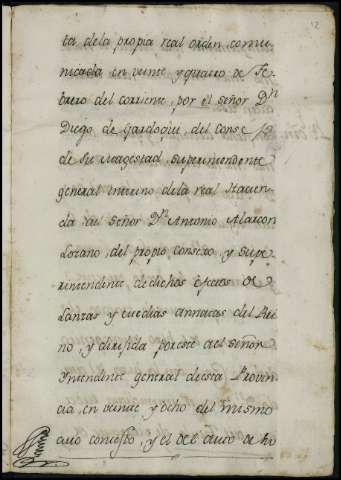 12
ta dela propia real orden comu-
nicada en veinte y quatro de Fe-
brero del corriente, por el señor Dn
Diego de Gardoqui, del Conse
de Su Magestad superintendente
general interino dela real Hacien-
da al señor Dn Antonio Alarcon
Lozano, del propio consexo, y supe-
rintendente de dichos efectos de
Lanzas y medias annatas del Rei
no, y dirijida por este al señor
Yntendente general de esta Provin-
cia, en veinte y ocho del mismo
y el del auto de ho